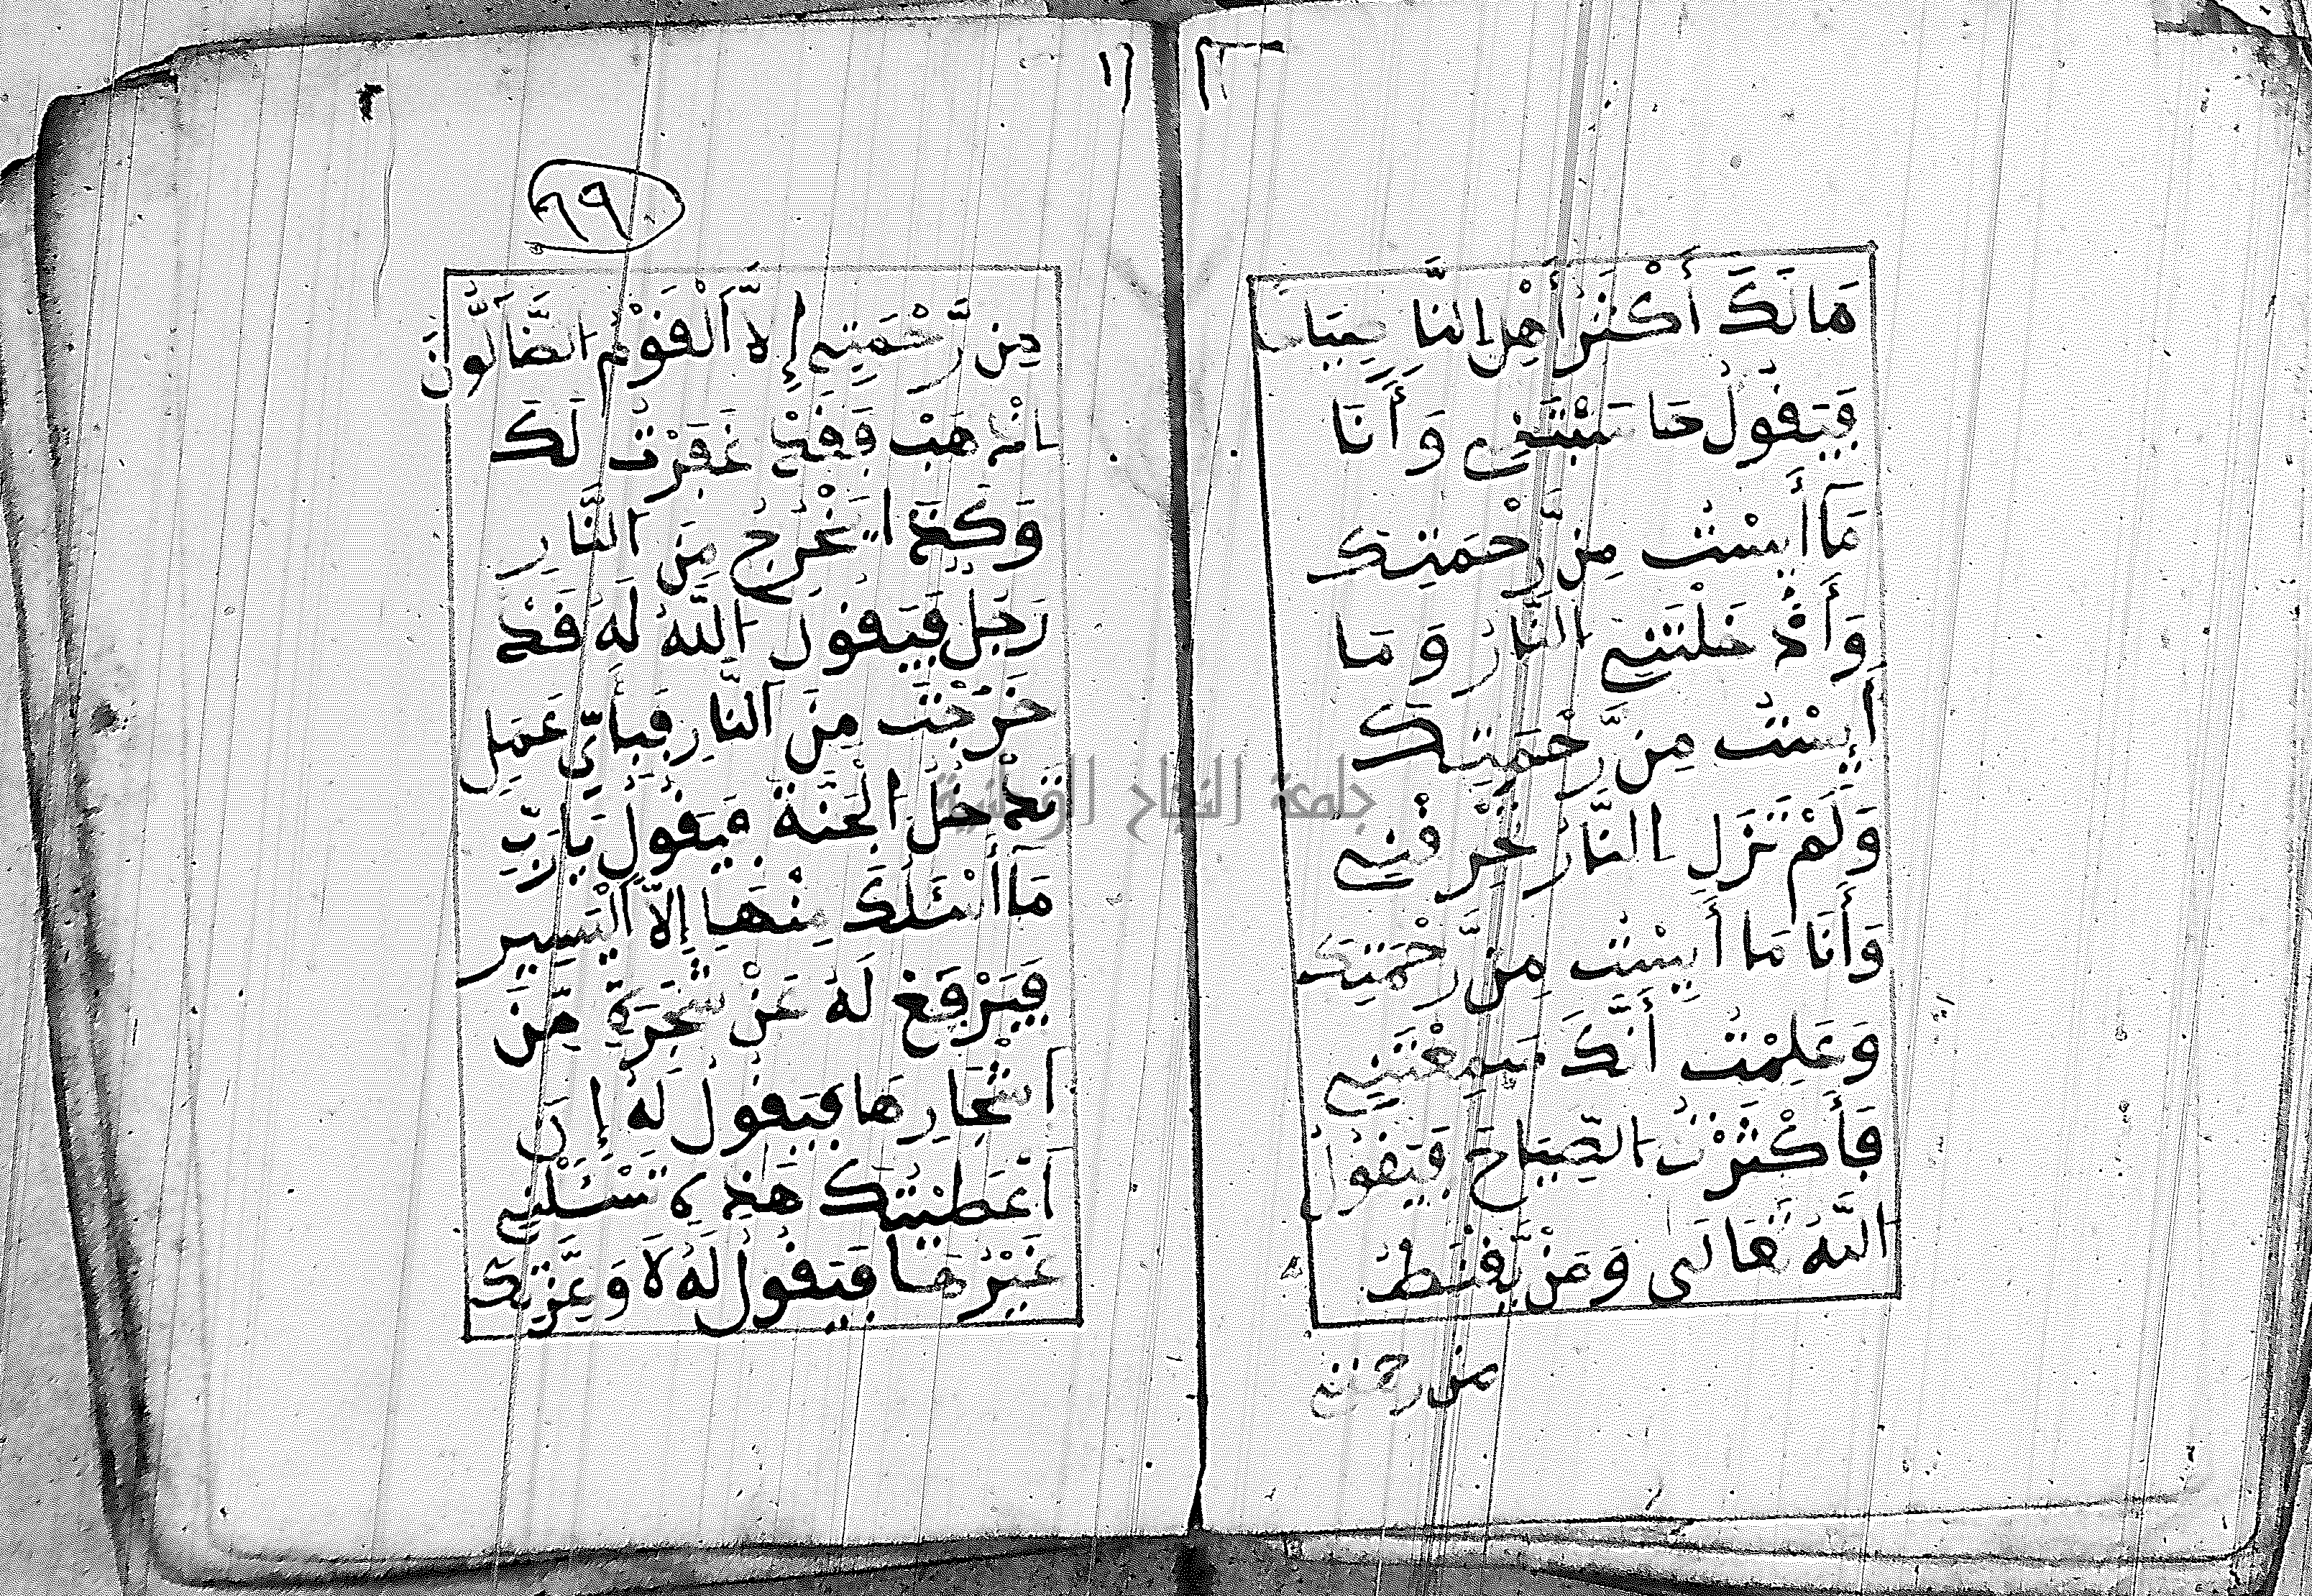 مَا لَكَ أَكْثَرُ أَهْلِ النَّارِ صِيَاحًا
فَيَقُولُ حَاسَبْتَنِي وَأَنَا
مَا أَيِسْتُ مِن رَّحْمَتِكَ
وَأَدْخَلْتَنِي النَّارَ وَمَا
أَيِسْتُ مِن رَّحْمَتِكَ
وَلَمْ تَزَلِ النَّارُ تُحْرِقُنِي
وَأَنَا مَا أَيِسْتُ مِن رَّحْمَتِكَ
وَعَلِمْتُ أَنَّكَ سَمِعْتَنِي
فَأَكْثَرْتُ الصِّيَاحَ فَيَقُولُ
اللَّهُ تَعَالَى وَمَنْ يَّقْنَطُ
من رحمتي
٦٩
مِن رَّحْمَتِي إِلَّا الْقَوْمُ الضَّالُّونَ
اذْهَبْ فَقَدْ غَفَرْتُ لَكَ
وَكَذَا يَخْرُجُ مِنَ النَّارِ
رَجُلٌ فَيَقُولُ اللَّهُ لَهُ قَدْ
خَرَجْتَ مِنَ النَّارِ فَبِأَيِّ عَمَلٍ
تَدْخُلُ الْجَنَّةَ فَيَقُولُ يَا رَبِّ
مَا أَسْئَلُكَ مِنْهَا إِلَّا الْيَسِيرَ
فَيَرْفَعُ لَهُ عَنْ شَجَرَةٍ مِّنْ
أَشْجَارِهَا فَيَقُولُ لَهُ إِنْ
أَعْطَيْتُكَ هَذِهِ تَسْئَلُنِي
غَيْرَهَا فَيَقُولُ لَهُ لَا وَعِزَّتِكَ
جامعة النجاح الوطنية